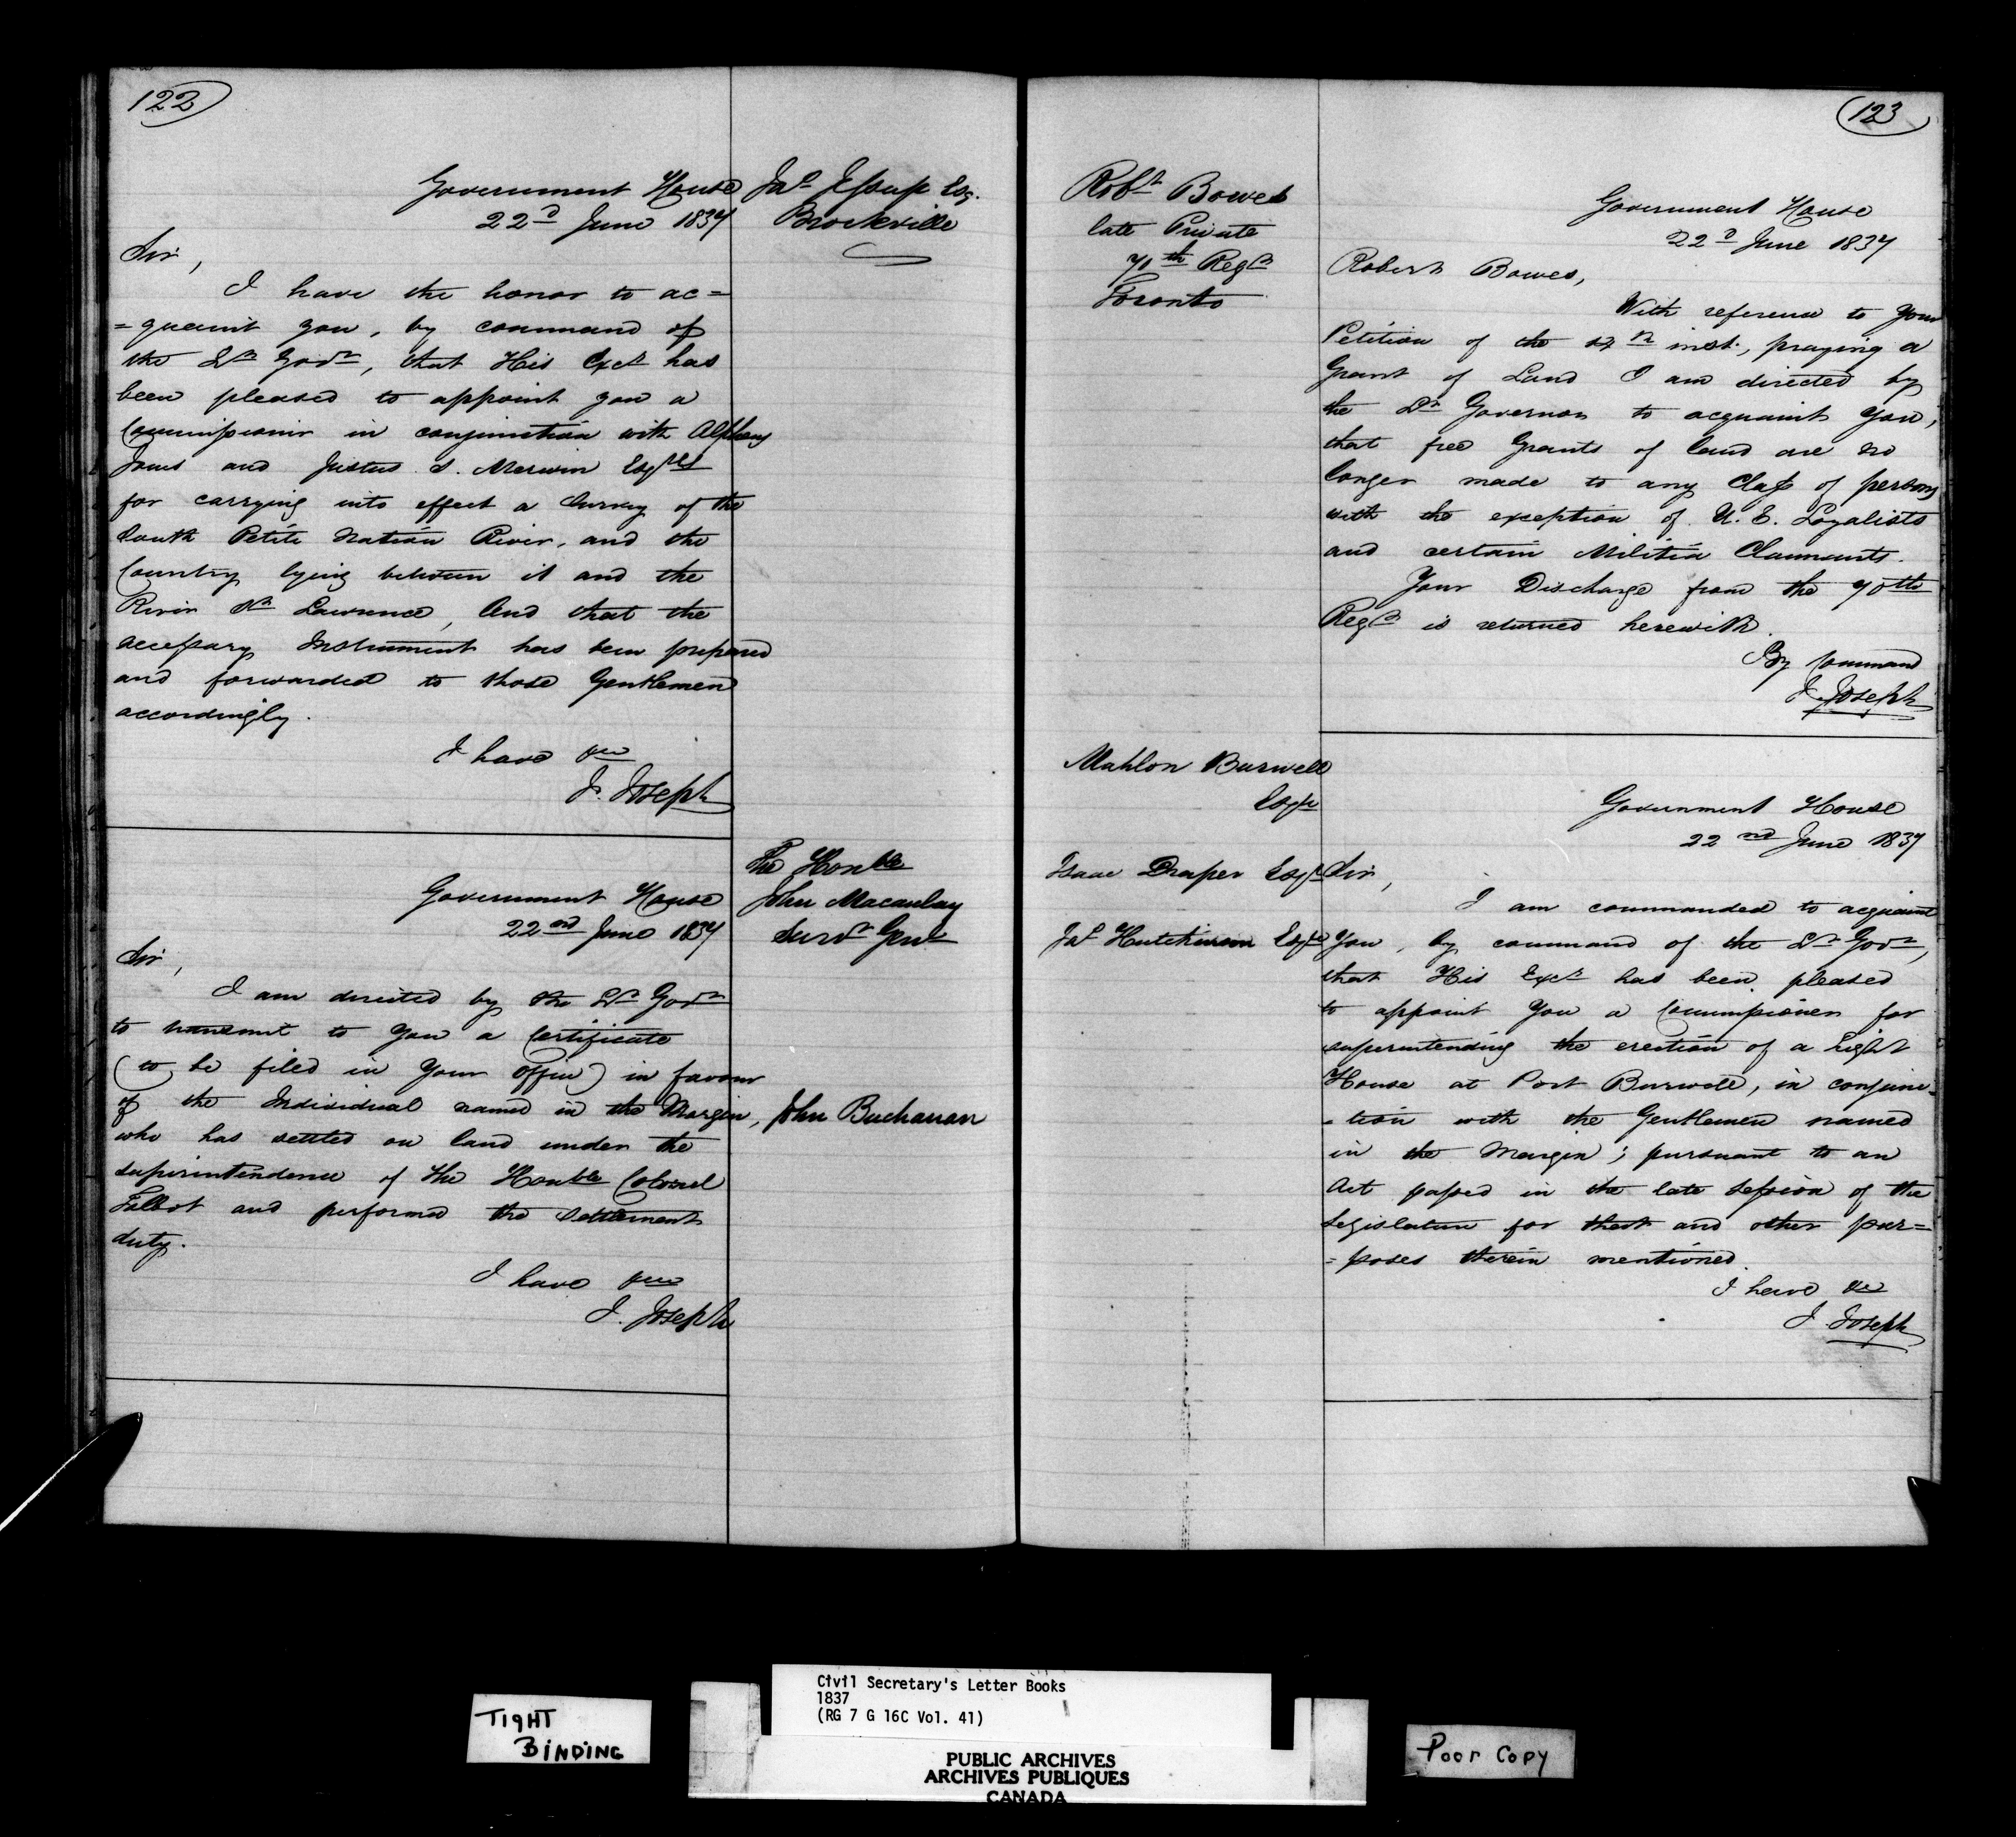 122
Government House
22d June 1837
Jas Jessup Esq.
Brockville
Sir,
I have the honor to ac=
=quaint you, by command of
the Lt Govr, that His Excy has
been pleased to appoint you a
Commissioner in conjunction with Alpheus
Jones and Justus S. Merwin Esqres
for carrying into effect a Survey of the
South Petite Nation River, and the
Country lying between it and the
River St Lawrence, And that the
necessary Instrument has been prepared
and forwarded to those Gentlemen
accordingly.
I have &c
J. Joseph
The Honble
John Macaulay
Survr Genl
Government House
22nd June 1837
Sir,
I am directed by the Lt Govr
to transmit to you a Certificate
(to be filed in Your Office) in favour
of the Individual named in the Margin,
John Buchanan
who has settled on land under the
superintendence of the Honble Colonel
Talbot and performed the Settlement
duty.
I have &c
J. Joseph
123
Robt Bowes
late Private
70th Regt
Toronto
Government House
22d June 1837
Robert Bowes,
With reference to Your
Petition of the inst., praying a
Grant of Land I am directed by
the Lt Governor to acquaint You,
that free Grants of land are no
longer made to any Class of persons
with the exception of U. E. Loyalists
and certain Militia Claimants.
Your Discharge from the 70th
Regt is returned herewith.
By Command
J. Joseph
Mahlon Burwell
Esqre
Isaac Draper Esqre
Jas Hutchinson Esqre
Government House
22nd June 1837
Sir,
I am commanded to acquaint
You, by command of the Lt Govr,
that His Excy has been pleased
to appoint You a Commissioner for
superintending the erection of a Light
House at Port Burwell, in conjunc-
-tion with the Gentlemen named
in the Margin; pursuant to an
Act passed in the late Session of the
Legislature for that and other pur=
=poses therein mentioned.
I have &c
J. Joseph
TIGHT
BINDING
Civil Secretary's Letter Books
1837
(RG 7 G 16C Vol. 41)
PUBLIC ARCHIVES
ARCHIVES PUBLIQUES
CANADA
Poor Copy